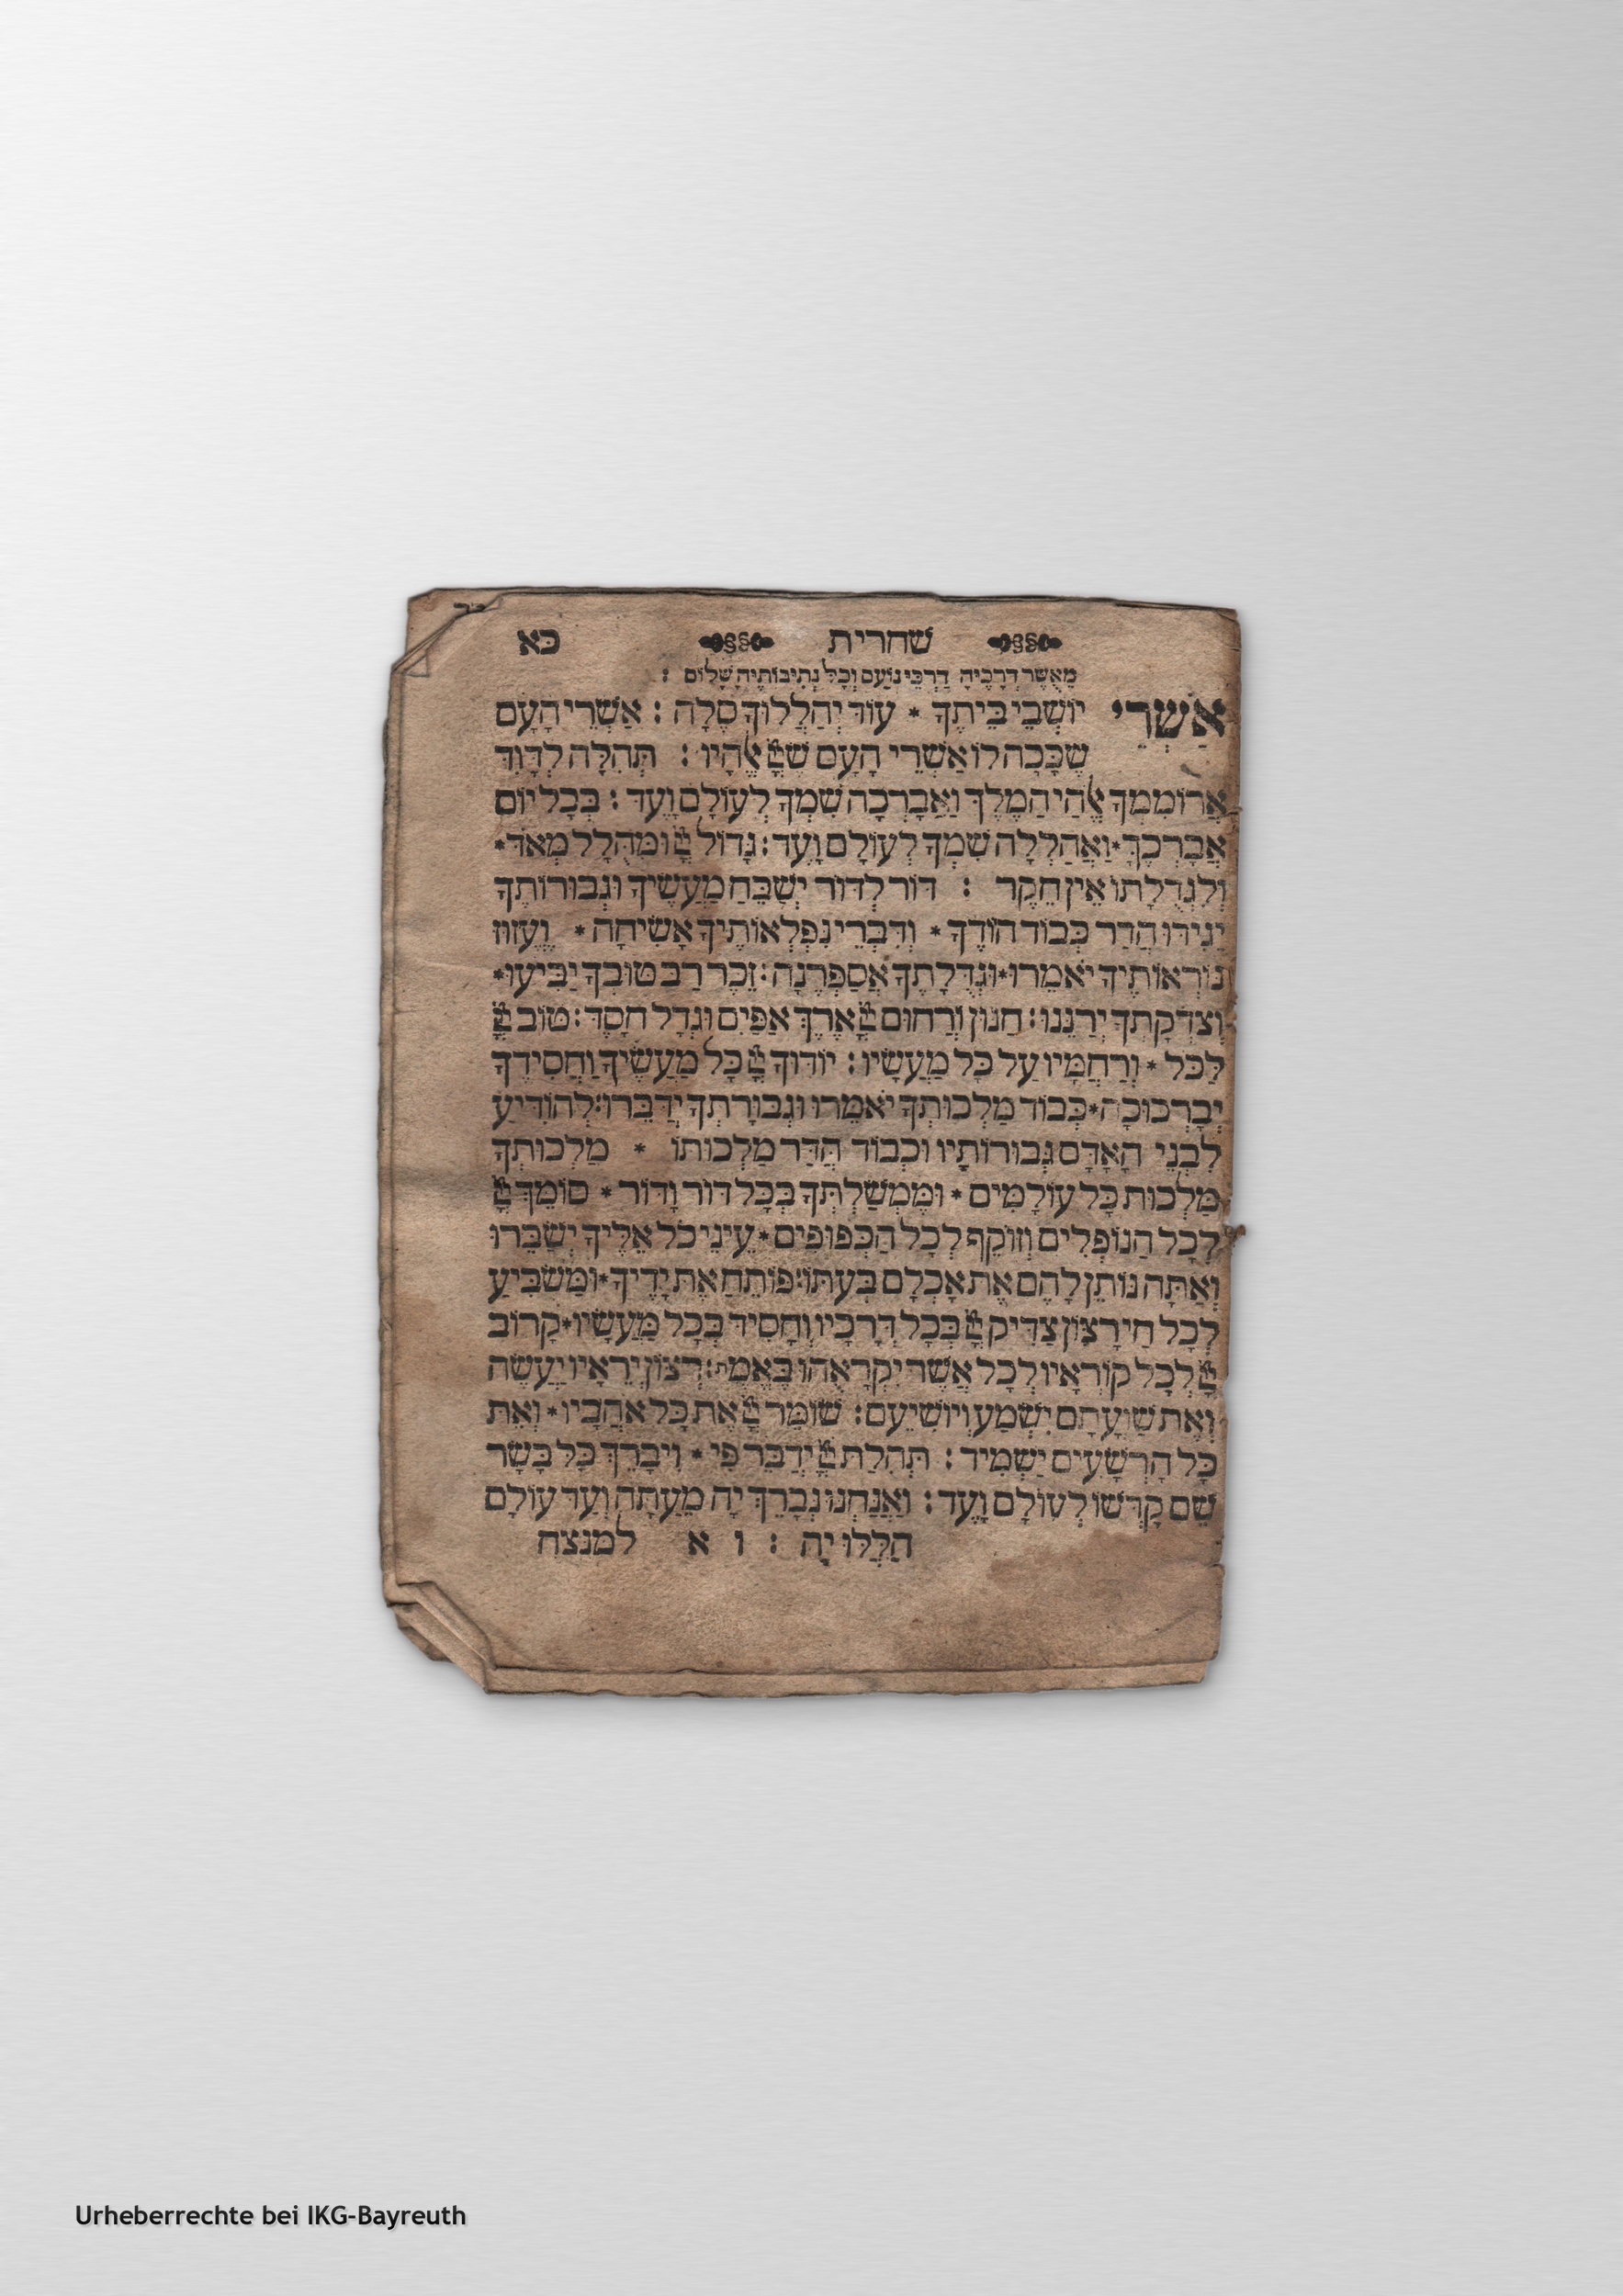 שחרית כא
מְאֻשָּׁר דְּרָכֶיהָ דַּרְכֵי נוֹעַם וְכָל נְתִיבוֹתֶיהָ שָׁלוֹם :
אַשְׁרֵי יוֹשְׁבֵי בֵיתֶךָ * עוֹד יְהַלְלוּךָ סֶּלָה : אַשְׁרֵי הָעָם
שֶׁכָּכָה לוֹ אַשְׁרֵי הָעָם שֶׁיְיָ אֱלֹהָיו : תְּהִלָּה לְדָוִד
אֲרוֹמִמְךָ אֱלֹהַי הַמֶּלֶךְ וַאֲבָרְכָה שִׁמְךָ לְעוֹלָם וָעֶד : בְּכָל יוֹם
אֲבָרְכֶךָּ * וַאֲהַלְלָה שִׁמְךָ לְעוֹלָם וָעֶד : גָּדוֹל יְיָ וּמְהֻלָּל מְאֹד *
וְלִגְדֻלָּתוֹ אֵין חֵקֶר : דּוֹר לְדוֹר יְשַׁבַּח מַעֲשֶׂיךָ וּגְבוּרוֹתֶיךָ
יַגִּידוּ הֲדַר כְּבוֹד הוֹדֶךָ * וְדִבְרֵי נִפְלְאוֹתֶיךָ אָשִׂיחָה * וֶעֱזוּז
נוֹרְאוֹתֶיךָ יֹאמֵרוּ * וּגְדֻלָּתְךָ אֲסַפְּרֶנָּה : זֵכֶר רַב טוּבְךָ יַבִּיעוּ *
וְצִדְקָתְךָ יְרַנֵּנוּ : חַנּוּן וְרַחוּם יְיָ אֶרֶךְ אַפַּיִם וּגְדָל חָסֶד : טוֹב יְיָ
לַכֹּל * וְרַחֲמָיו עַל כָּל מַעֲשָׂיו : יוֹדוּךָ יְיָ כָּל מַעֲשֶׂיךָ וַחֲסִידֶיךָ
יְבָרְכוּכָה * כְּבוֹד מַלְכוּתְךָ יֹאמֵרוּ וּגְבוּרָתְךָ יְדַבֵּרוּ : לְהוֹדִיעַ
לִבְנֵי הָאָדָם גְּבוּרוֹתָיו וּכְבוֹד הֲדַר מַלְכוּתוֹ * מַלְכוּתְךָ
מַלְכוּת כָּל עוֹלָמִים * וּמֶמְשַׁלְתְּךָ בְּכָל דּוֹר וָדוֹר * סוֹמֵךְ יְיָ
לְכָל הַנּוֹפְלִים וְזוֹקֵף לְכָל הַכְּפוּפִים * עֵינֵי כֹל אֵלֶיךָ יְשַׂבֵּרוּ
וְאַתָּה נוֹתֵן לָהֶם אֶת אָכְלָם בְּעִתּוֹ : פּוֹתֵחַ אֶת יָדֶיךָ * וּמַשְׂבִּיעַ
לְכָל חַי רָצוֹן צַדִּיק יְיָ בְּכָל דְּרָכָיו וְחָסִיד בְּכָל מַעֲשָׂיו * קָרוֹב
יְיָ לְכָל קוֹרְאָיו לְכָל אֲשֶׁר יִקְרָאֻהוּ בֶאֱמֶת : רְצוֹן יְרֵאָיו יַעֲשֶׂה
וְאֶת שַׁוְעָתָם יִשְׁמַע וְיוֹשִׁיעֵם : שׁוֹמֵר יְיָ אֶת כָּל אֹהֲבָיו * וְאֵת
כָּל הָרְשָׁעִים יַשְׁמִיד : תְּהִלַּת יְיָ יְדַבֶּר פִּי * וִיבָרֵךְ כָּל בָּשָׂר
שֵׁם קָדְשׁוֹ לְעוֹלָם וָעֶד : וַאֲנַחְנוּ נְבָרֵךְ יָהּ מֵעַתָּה וְעַד עוֹלָם
הַלְלוּיָהּ : ו א למנצח
Urheberrechte bei IKG-Bayreuth